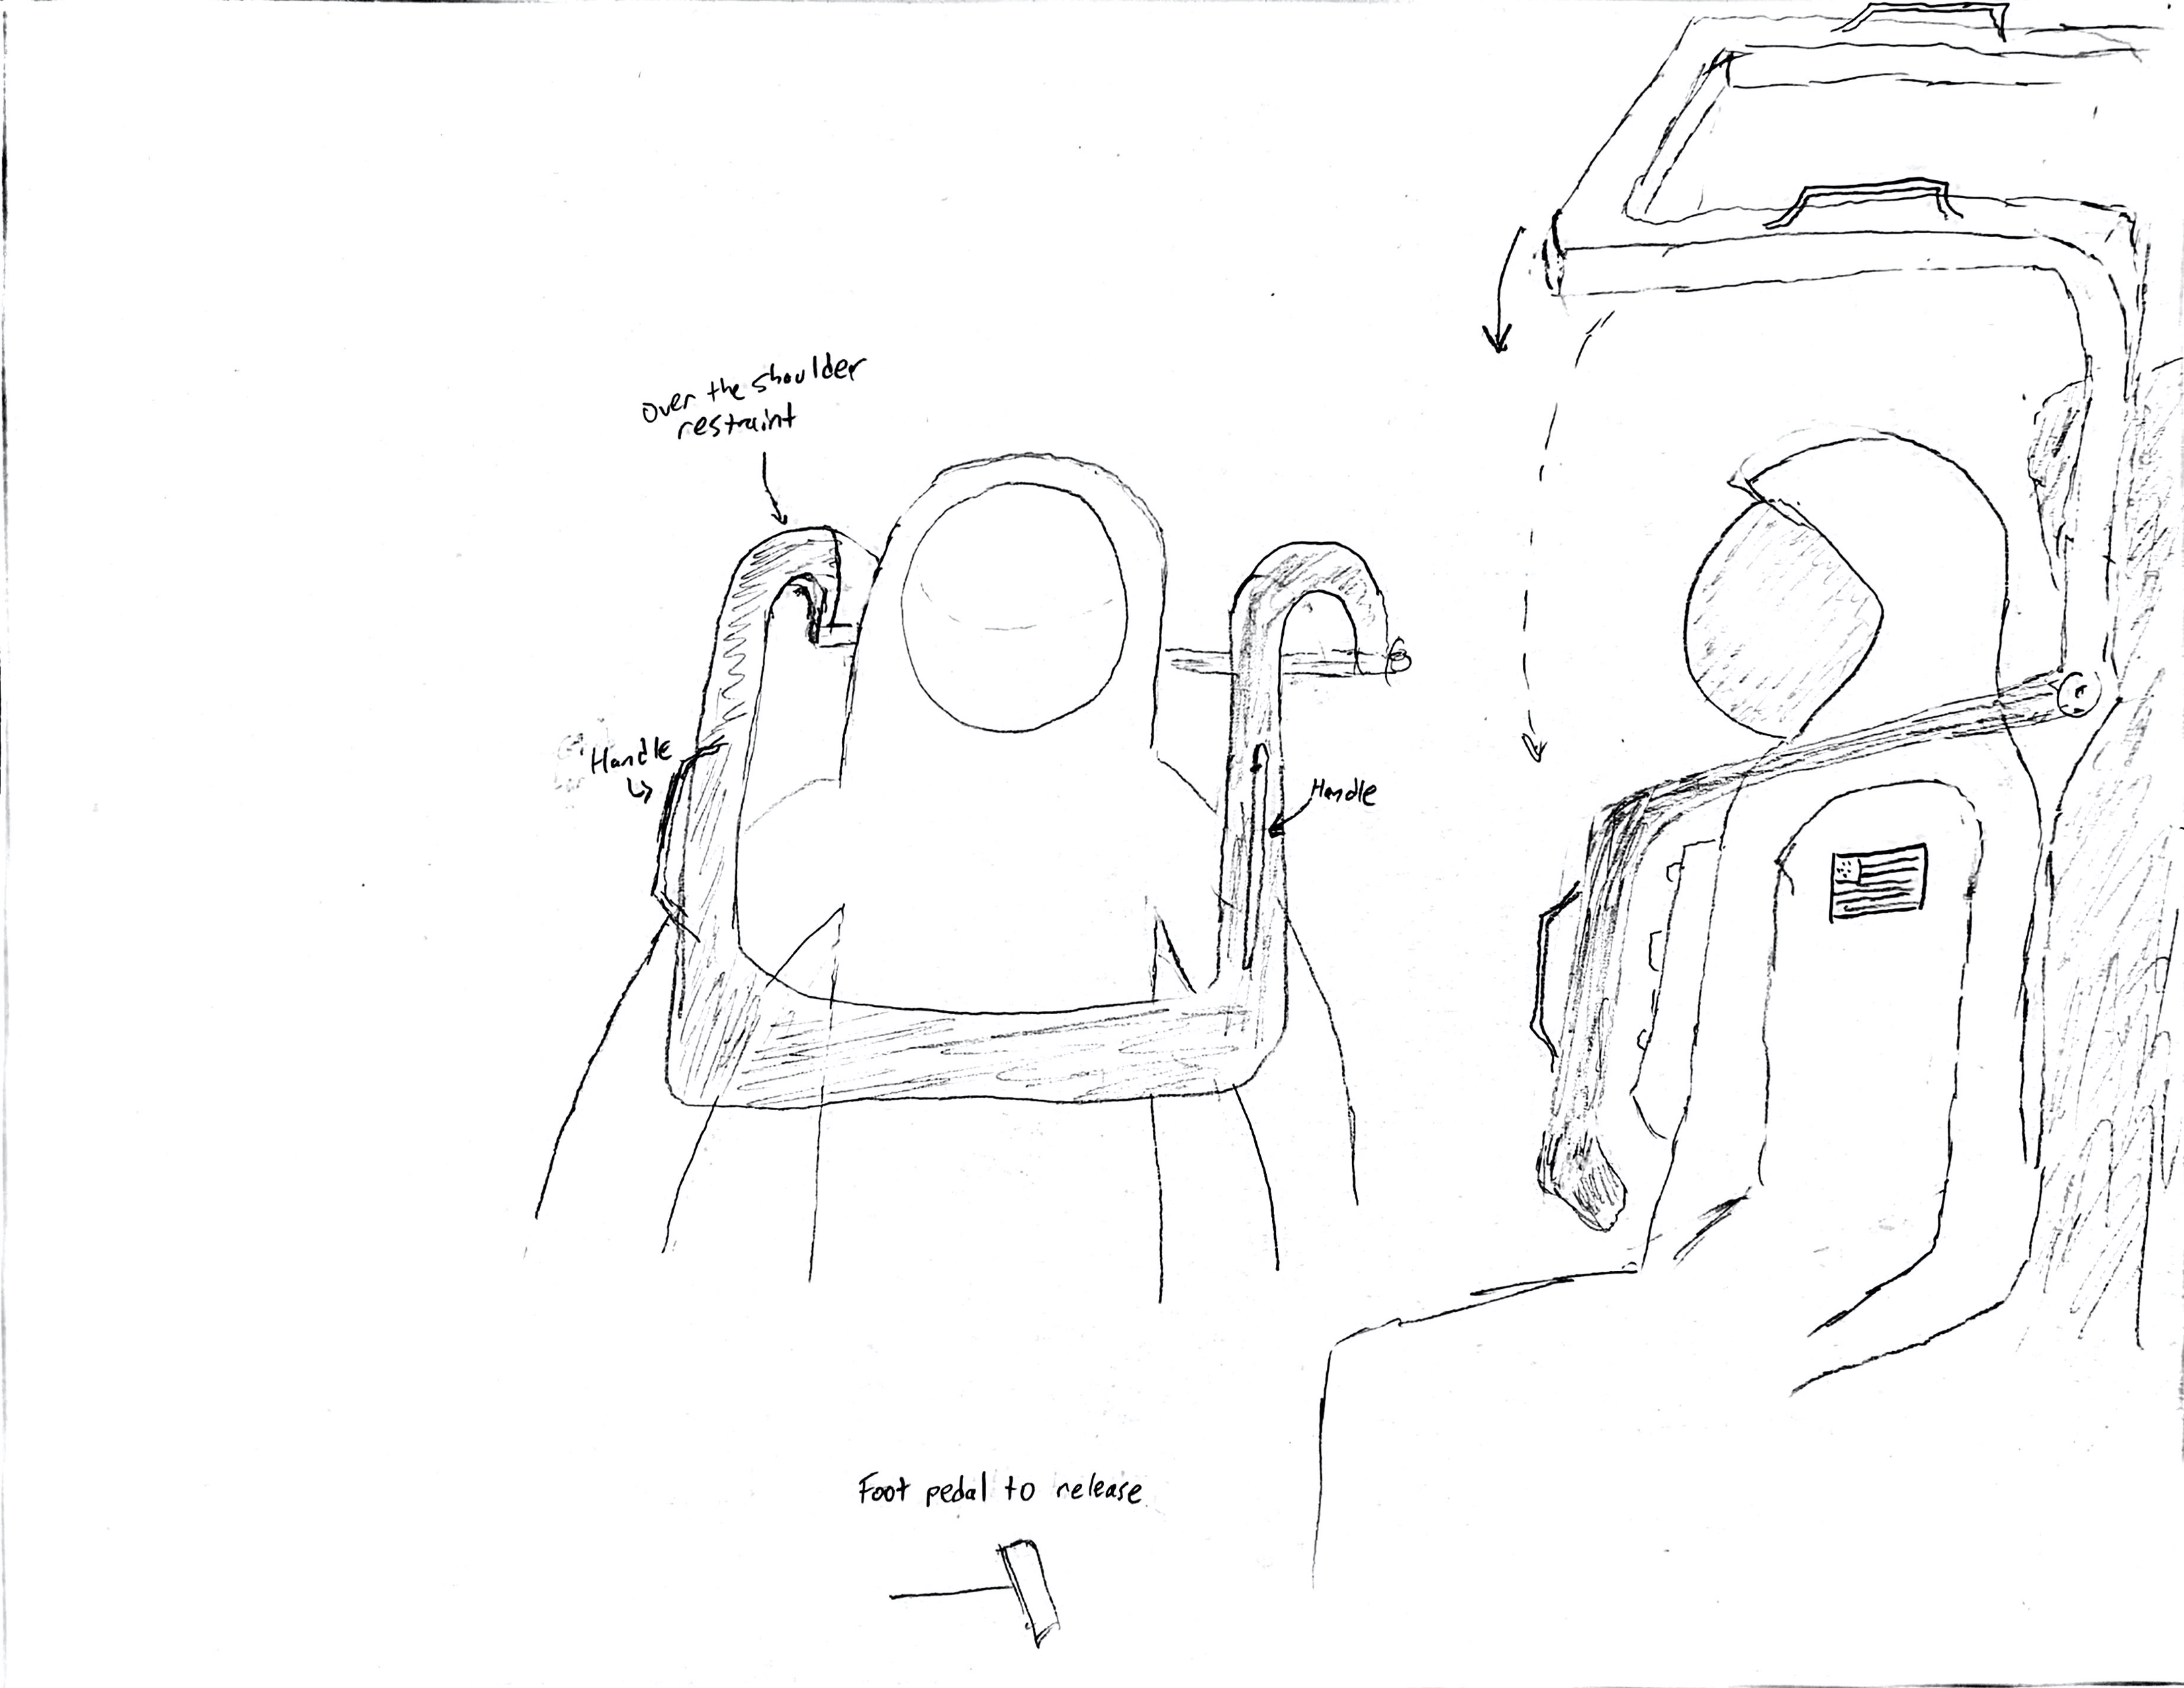 over the shoulder
restraint
Handle
Handle
Foot pedal to release